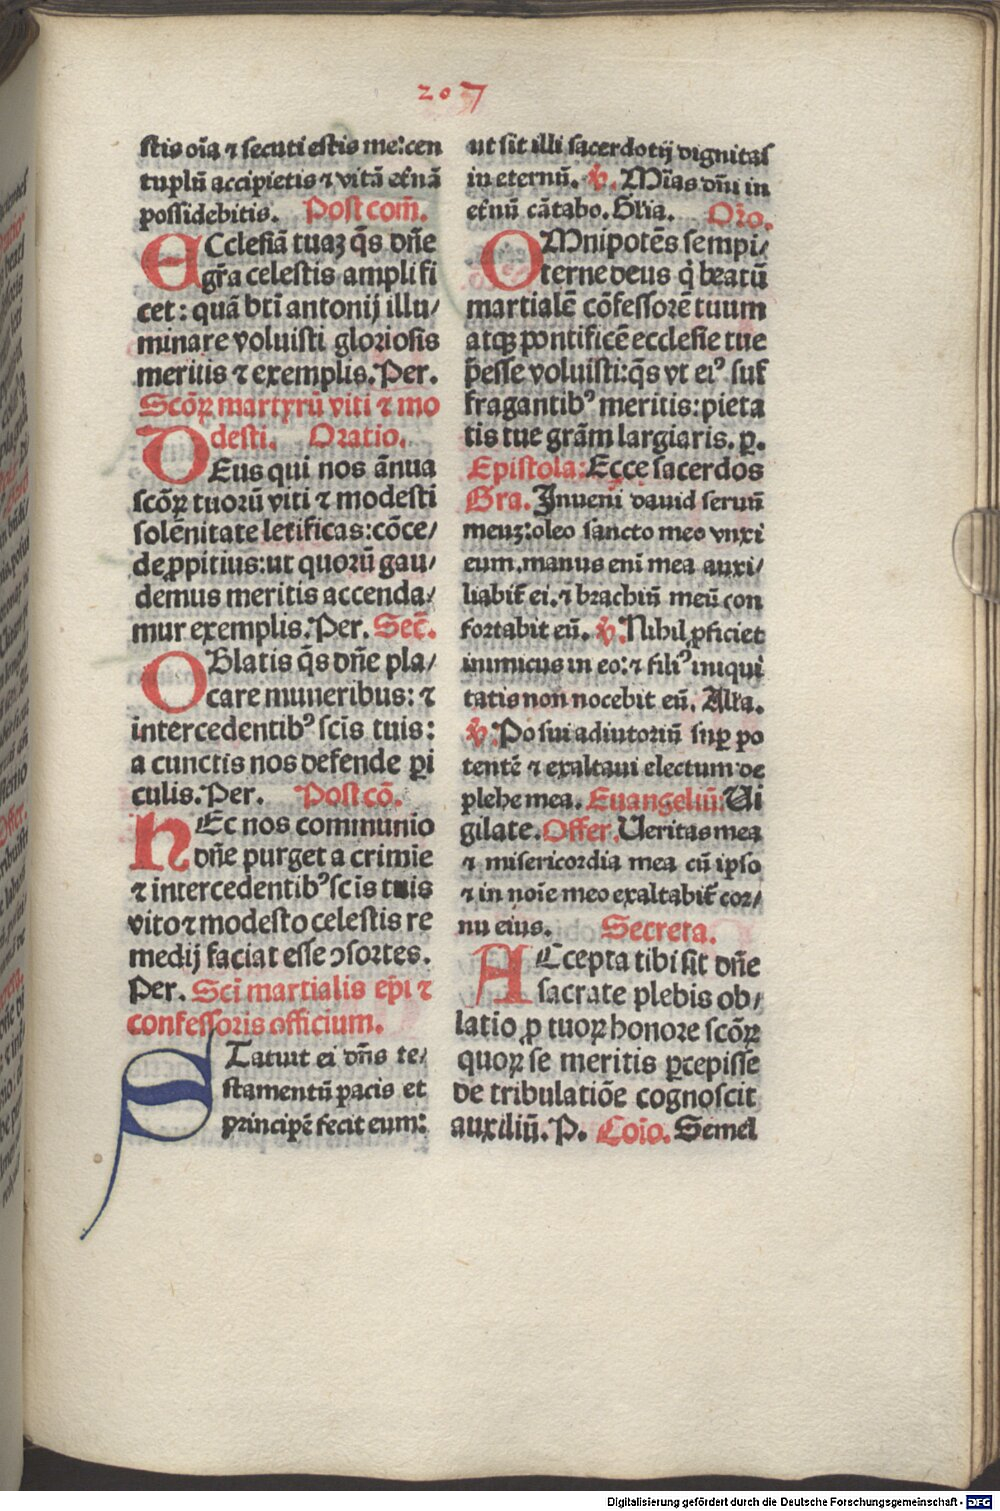 207
stis oīa ⁊ secuti estis me:cen
tuplū accipietis ⁊ vitā et̄nā
possidebitis. Post com̄.
ECclesiā tuaʒ q̄s dn̄e
gr̄a celestis amplifi
cet: quā bt̄i antonij illu/
minare voluisti gloriosis
meritis ⁊ exemplis. Per.
Scōꝝ martyrū viti ⁊ mo
desti. Oratio.
DEus qui nos ānua
scōꝝ tuorū viti ⁊ modesti
solēnitate letificas: cōce/
de ꝓpitius: ut quorū gau/
demus meritis accenda/
mur exemplis. Per. Sec̄.
OBlatis q̄s dn̄e pla/
care muneribus: ⁊
intercedentibꝰ scīs tuis:
a cunctis nos defende ꝑi
culis. Per. Post cō.
HEc nos communio
dn̄e purget a crimīe
⁊ intercedentibꝰ scīs tuis
vito ⁊ modesto celestis re
medij faciat esse ꝯsortes.
Per. Sci martialis ep̄i ⁊
confessoris officium.
STatuit ei dn̄s te/
stamentū pacis et
principē fecit eum:
ut sit illi sacerdotij dignitas
in eternū. ℣. Mīas dn̄i in
et̄nū cātabo. Gl̄ia. Oro.
OMnipotēs sempi/
terne deus q̄ beatū
martialē cōfessorē tuum
atqꝫ pontificē ecclesie tue
p̄esse voluisti: q̄s vt eiꝰ suf
fragantibꝰ meritis: pieta
tis tue grām largiaris. ꝑ.
Epistola: Ecce sacerdos
Gra. Inueni dauid seruū
meuʒ: oleo sancto meo vnxi
eum, manus eni mea auxi/
liabit̄ ei. ⁊ brachiū meū con
fortabit eū. ℣. Nihil ꝓficiet
inimicus in eo: ⁊ filiꝰ iniqui
tatis non nocebit eū. Alła.
℣. Posui adiutoriū sup po
tentē ⁊ exaltaui electum de
plebe mea. Euangeliū: Ui
gilate. Offer. Ueritas mea
⁊ misericordia mea cū ipso
⁊ in noīe meo exaltabit̄ cor/
nu eius. Secreta.
ACcepta tibi sit dn̄e
sacrate plebis ob/
latio ꝓ tuoꝝ honore scōꝝ
quoꝝ se meritis ꝑcepisse
de tribulatiōe cognoscit
auxiliū. P. Coīo. Semel
Digitalisierung gefördert durch die Deutsche Forschungsgemeinschaft - DFG